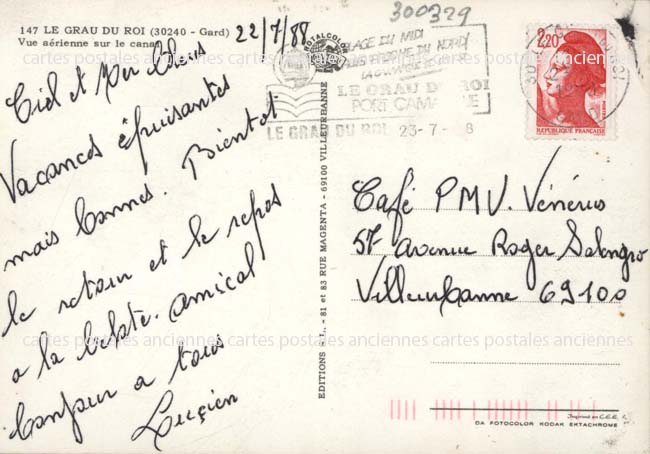 147 LE GRAU DU ROI (30240 - Gard)
Vue aérienne sur le canal
22/7/88
300329
Ciel et Mer bleus
Vacances épuisantes
mais bonnes. Bientot
le retour et le repos
a la belote. Amical
bonjour a tous
Lucien
EDITIONS S.L. - 81 et 83 RUE MAGENTA - 69100 VILLEURBANNE
ROTALCOLOR
PLAGE DU MIDI
LE GRAU DU ROI
PORT CAMARGUE
LE GRAU DU ROI 23-7-88
2,20
REPUBLIQUE FRANÇAISE
Café P.M.U. Vénérus
57 avenue Roger Salengro
Villeurbanne 69100
cartes postales anciennes cartes postales anciennes cartes postales anciennes
cartes postales anciennes cartes postales anciennes cartes postales anciennes
Imprimé en C.E.E.
DA FOTOCOLOR KODAK EKTACHROME